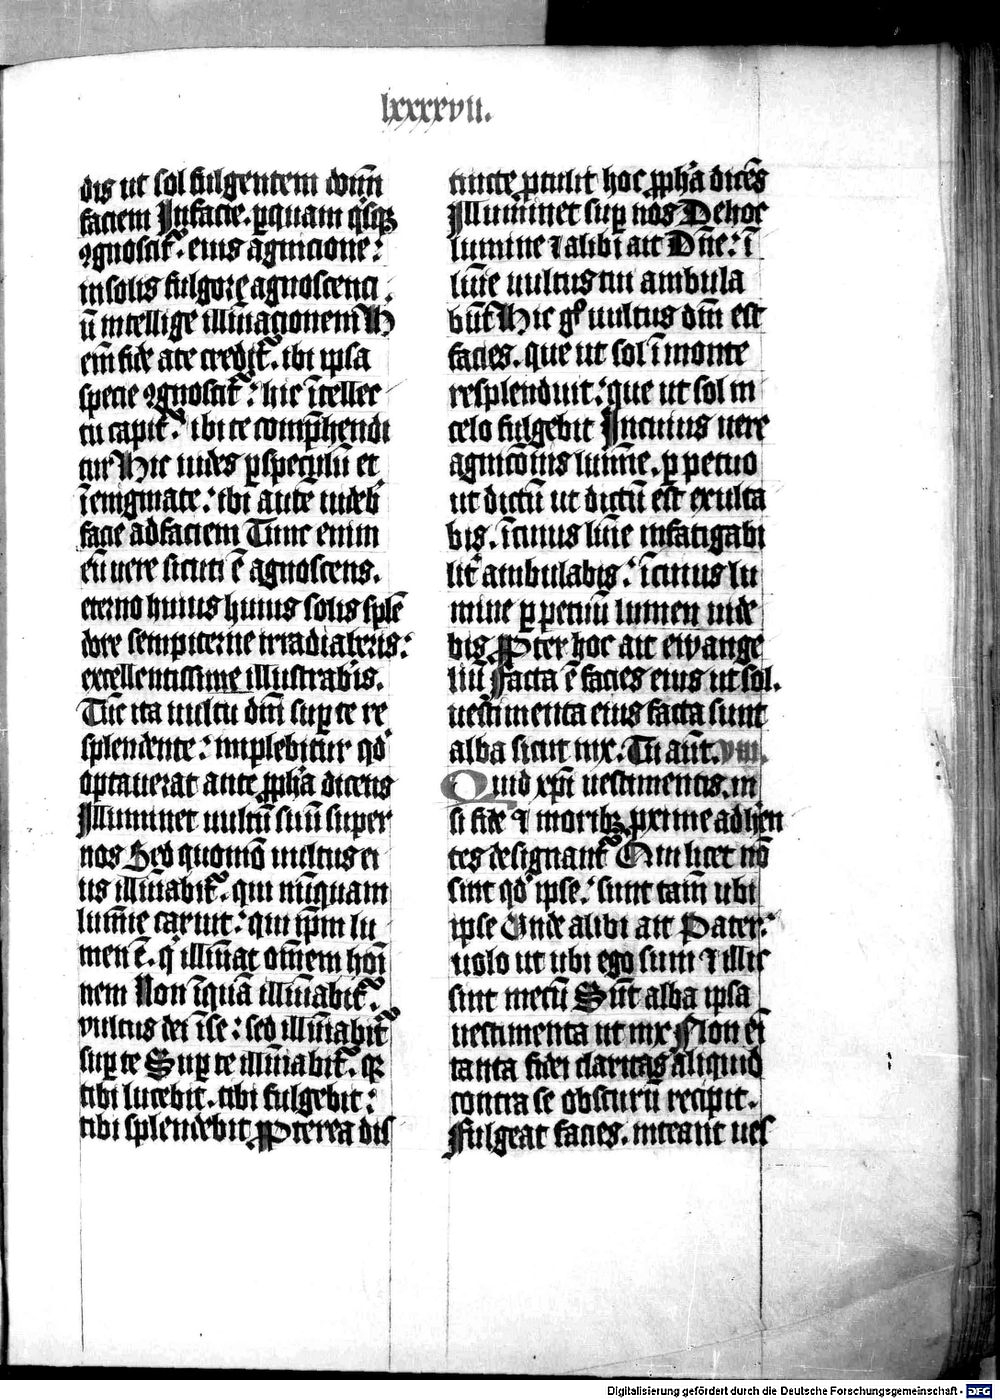 lxxxxvii.
dis ut sol fulgentem domĩ
faciem In facie. ꝑquam qͥsqꝫ
ꝯgnoscit᷑. eius agnicione:
in solis fulgore agnoscenti.
ũ intellige illũiacionem H
em fide a te credit᷑. ibi ipsa
specie ꝯgnoscit᷑: hic ĩtellec
tu capit᷑. ibi te comp̃hendi
tur Hic uides ꝑ speculũ et
ĩ enigmate: ibi autẽ uideb᷑
facie ad faciem Tunc enim
eũ uere sicuti ẽ agnoscens.
eterno huius huius solis splẽ
dore sempiterne irradiaberis:
excellentissime illustrabis.
Tũc ita uultu dñi suꝑ te re
splendente: implebitur qd̛
optauerat ante ꝓph̃a dicens
Illuminet uultũ suũ super
nos Sed quomõ uultus ei
us illũiabit᷑. qui nũquam
lumĩe caruit: qui ip̃m lu
men ẽ. qͥ illũiat om̃em hoĩ
nem Non ĩquã illũiabit᷑.
vultus dei ĩ se: sed illũiabit᷑
suꝑ te Suꝑ te illũiabit᷑. qꝛ
tibi lucebit. tibi fulgebit:
tibi splendebit Ꝓpterea dis
tincte ꝓtulit hoc ꝓph̃a dicẽs
Illuminet suꝑ nos De hoc
lumine ⁊ alibi ait Dñe: ĩ
lũie uultus tui ambula
bũt Hic gͦ uultus dñi est
facies. que ut sol ĩ monte
resplenduit: que ut sol in
celo fulgebit In cuius uere
agnicõnis lumĩe. ꝑpetuo
ut dictũ ut dictũ est exulta
bis. ĩ cuius lũie infatigabi
lit᷑ ambulabis: ĩ cuius lu
mine ꝑpetuũ lumen uide
bis Ꝓpter hoc ait ewange
liũ Facta ẽ facies eius ut sol.
uestimenta eius facta sunt
alba sicut nix. Tu aũt. viii.
Quid xp̃i uestimentis. ni
si fide ⁊ moribꝫ ꝓxime adhẽn
tes designant᷑ Qui licet nõ
sint qd̛ ipse: sunt tam̃ ubi
ipse Unde alibi ait Pater:
uolo ut ubi ego sum ⁊ illic
sint mecũ Sũt alba ipsa
uestimenta ut nix Non ei
tanta fidei claritas aliquid
contra se obscurũ recipit.
Fulgeat facies. niteant ues
Digitalisierung gefördert durch die Deutsche Forschungsgemeinschaft - DFG